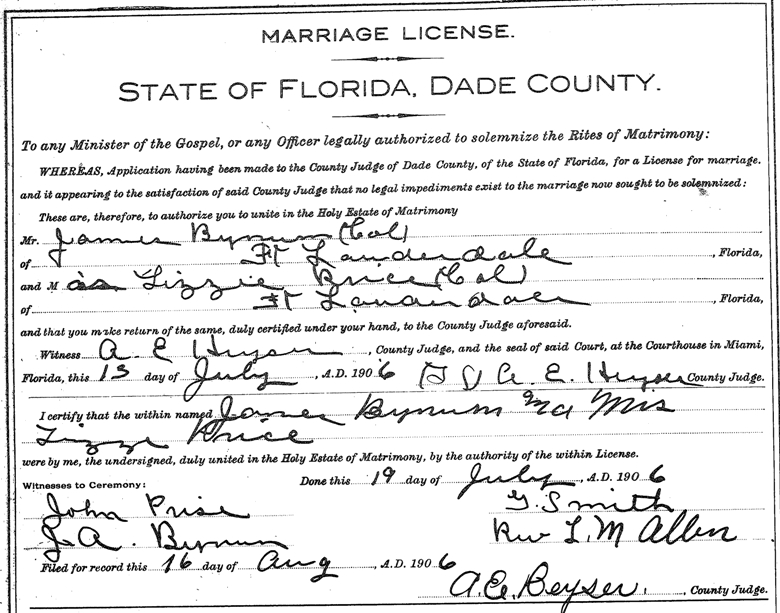 MARRIAGE LICENSE.
STATE OF FLORIDA, DADE COUNTY.
To any Minister of the Gospel, or any Officer legally authorized to solemnize the Rites of Matrimony:
WHEREAS, Application having been made to the County Judge of Dade County, of the State of Florida, for a License for marriage.
and it appearing to the satisfaction of said County Judge that no legal impediments exist to the marriage now sought to be solemnized:
These are, therefore, to authorize you to unite in the Holy Estate of Matrimony
Mr. James Bynum (Col)
of Ft Lauderdale, Florida,
and M Lizzie Price (Col)
of Ft Lauderdale, Florida,
and that you make return of the same, duly certified under your hand, to the County Judge aforesaid.
Witness A E Heyser, County Judge, and the seal of said Court, at the Courthouse in Miami,
Florida, this 13 day of July, A.D. 1906 A. E. Heyser County Judge.
I certify that the within named James Bynum and Mis
Lizze Price
were by me, the undersigned, duly united in the Holy Estate of Matrimony, by the authority of the within License.
Witnesses to Ceremony: Done this 19 day of July, A.D. 1906
John Prise G. Smith
J. A. Bynum Rev L. M Allen
Filed for record this 16 day of Aug, A.D. 1906
A. E. Beyser, County Judge.